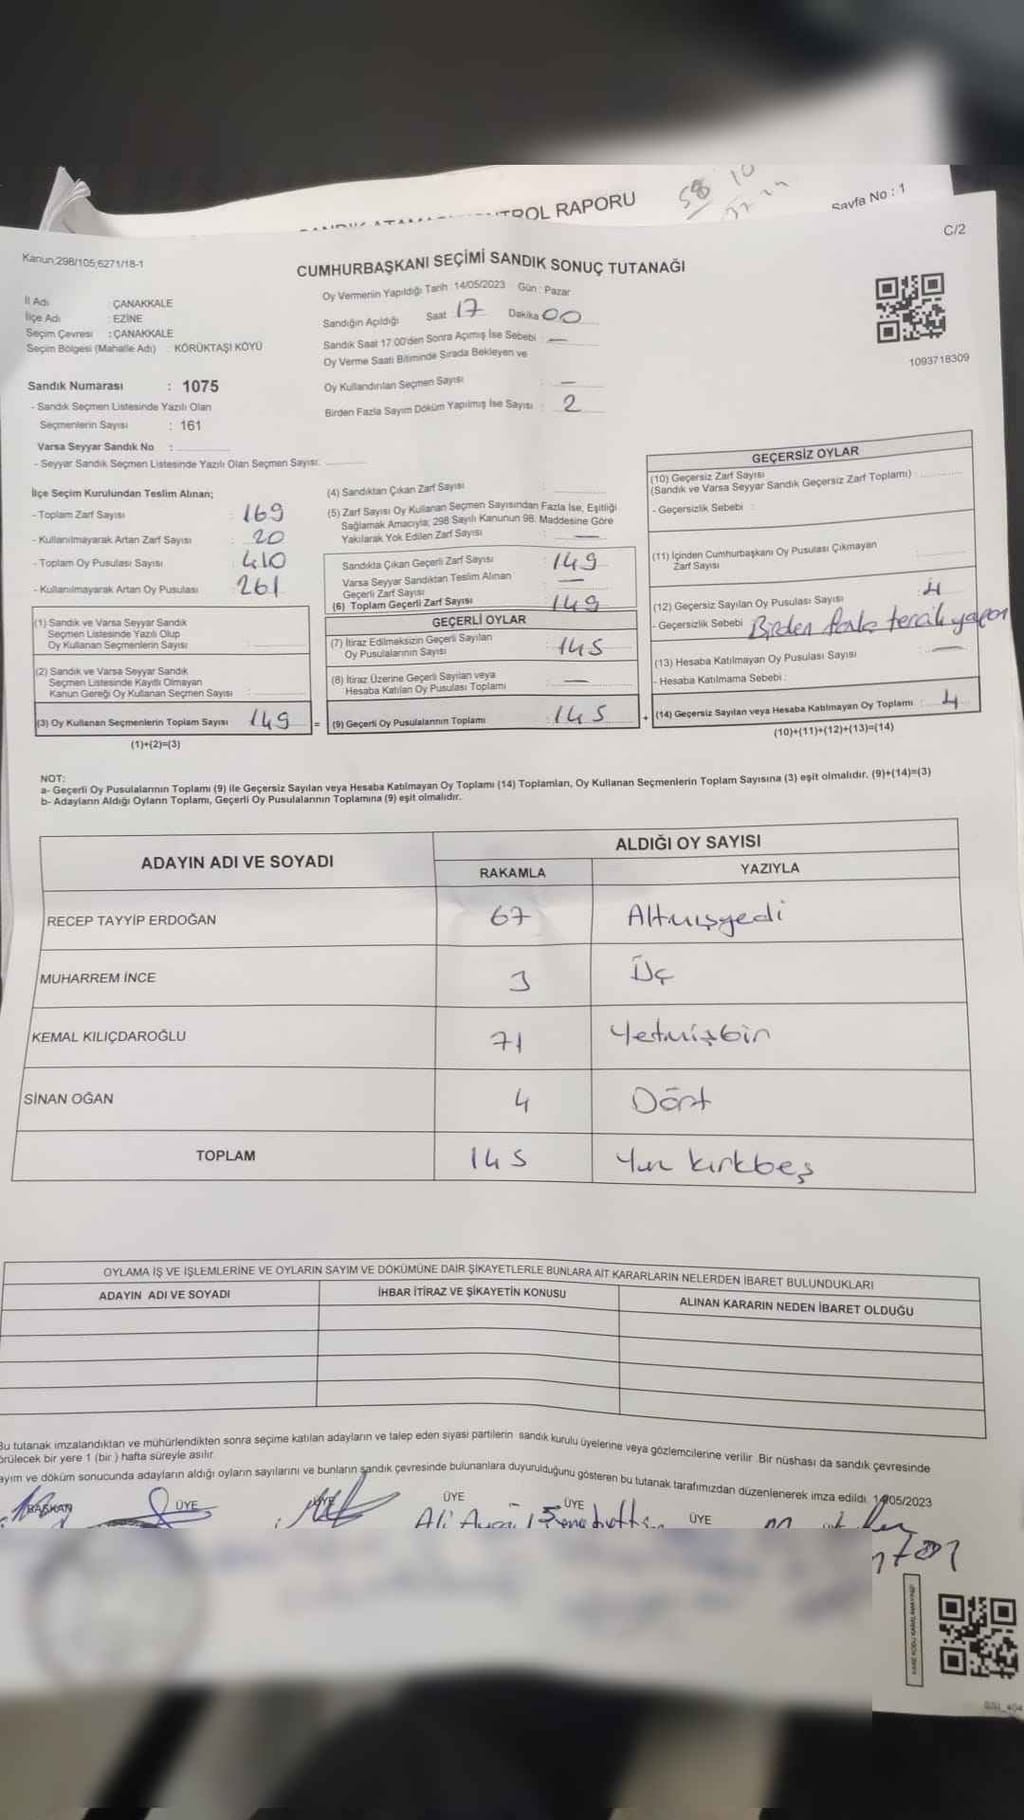 TROL RAPORU
58 10
Sayfa No : 1
C/2
Kanun;298/105;6271/18-1
CUMHURBAŞKANI SEÇİMİ SANDIK SONUÇ TUTANAĞI
İl Adı : ÇANAKKALE
İlçe Adı : EZİNE
Seçim Çevresi : ÇANAKKALE
Seçim Bölgesi (Mahalle Adı) : KÖRÜKTAŞI KÖYÜ
Oy Vermenin Yapıldığı Tarih :14/05/2023 Gün : Pazar
Sandığın Açıldığı Saat 17 Dakika 00
Sandık Saat 17.00'den Sonra Açımış İse Sebebi : —
Oy Verme Saati Bitiminde Sırada Bekleyen ve
Oy Kullandırılan Seçmen Sayısı : —
Birden Fazla Sayım Döküm Yapılmış İse Sayısı : 2
1093718309
Sandık Numarası : 1075
- Sandık Seçmen Listesinde Yazılı Olan
Seçmenlerin Sayısı : 161
Varsa Seyyar Sandık No :
- Seyyar Sandık Seçmen Listesinde Yazılı Olan Seçmen Sayısı:
İlçe Seçim Kurulundan Teslim Alınan;
- Toplam Zarf Sayısı : 169
- Kullanılmayarak Artan Zarf Sayısı : 20
- Toplam Oy Pusulası Sayısı : 410
- Kullanılmayarak Artan Oy Pusulası : 261
(1) Sandık ve Varsa Seyyar Sandık
Seçmen Listesinde Yazılı Olup
Oy Kullanan Seçmenlerin Sayısı :
(2) Sandık ve Varsa Seyyar Sandık
Seçmen Listesinde Kayıtlı Olmayan
Kanun Gereği Oy Kullanan Seçmen Sayısı :
(3) Oy Kullanan Seçmenlerin Toplam Sayısı : 149
(1)+(2)=(3)
(4) Sandıktan Çıkan Zarf Sayısı :
(5) Zarf Sayısı Oy Kullanan Seçmen Sayısından Fazla İse, Eşitliği
Sağlamak Amacıyla; 298 Sayılı Kanunun 98. Maddesine Göre
Yakılarak Yok Edilen Zarf Sayısı : —
Sandıkta Çıkan Geçerli Zarf Sayısı : 149
Varsa Seyyar Sandıktan Teslim Alınan
Geçerli Zarf Sayısı : —
(6) Toplam Geçerli Zarf Sayısı : 149
GEÇERLİ OYLAR
(7) İtiraz Edilmeksizin Geçerli Sayılan
Oy Pusulalarının Sayısı : 145
(8) İtiraz Üzerine Geçerli Sayılan veya
Hesaba Katılan Oy Pusulası Toplamı : —
= (9) Geçerli Oy Pusulalarının Toplamı : 145
GEÇERSİZ OYLAR
(10) Geçersiz Zarf Sayısı
(Sandık ve Varsa Seyyar Sandık Geçersiz Zarf Toplamı) :
- Geçersizlik Sebebi :
(11) İçinden Cumhurbaşkanı Oy Pusulası Çıkmayan
Zarf Sayısı :
(12) Geçersiz Sayılan Oy Pusulası Sayısı : 4
- Geçersizlik Sebebi Birden fazla tercih yapan
(13) Hesaba Katılmayan Oy Pusulası Sayısı : —
- Hesaba Katılmama Sebebi :
+ (14) Geçersiz Sayılan veya Hesaba Katılmayan Oy Toplamı : 4
(10)+(11)+(12)+(13)=(14)
NOT:
a- Geçerli Oy Pusulalarının Toplamı (9) ile Geçersiz Sayılan veya Hesaba Katılmayan Oy Toplamı (14) Toplamları, Oy Kullanan Seçmenlerin Toplam Sayısına (3) eşit olmalıdır. (9)+(14)=(3)
b- Adayların Aldığı Oyların Toplamı, Geçerli Oy Pusulalarının Toplamına (9) eşit olmalıdır.
ADAYIN ADI VE SOYADI ALDIĞI OY SAYISI
RAKAMLA YAZIYLA
RECEP TAYYİP ERDOĞAN 67 Altmışyedi
MUHARREM İNCE 3 Üç
KEMAL KILIÇDAROĞLU 71 Yetmişbir
SİNAN OĞAN 4 Dört
TOPLAM 145 Yüz kırkbeş
OYLAMA İŞ VE İŞLEMLERİNE VE OYLARIN SAYIM VE DÖKÜMÜNE DAİR ŞİKAYETLERLE BUNLARA AİT KARARLARIN NELERDEN İBARET BULUNDUKLARI
ADAYIN ADI VE SOYADI İHBAR İTİRAZ VE ŞİKAYETİN KONUSU ALINAN KARARIN NEDEN İBARET OLDUĞU
Bu tutanak imzalandıktan ve mühürlendikten sonra seçime katılan adayların ve talep eden siyasi partilerin sandık kurulu üyelerine veya gözlemcilerine verilir. Bir nüshası da sandık çevresinde
örülecek bir yere 1 (bir ) hafta süreyle asılır.
ayım ve döküm sonucunda adayların aldığı oyların sayılarını ve bunların sandık çevresinde bulunanlara duyurulduğunu gösteren bu tutanak tarafımızdan düzenlenerek imza edildi. 14/05/2023
BAŞKAN ÜYE ÜYE ÜYE ÜYE ÜYE
Ali